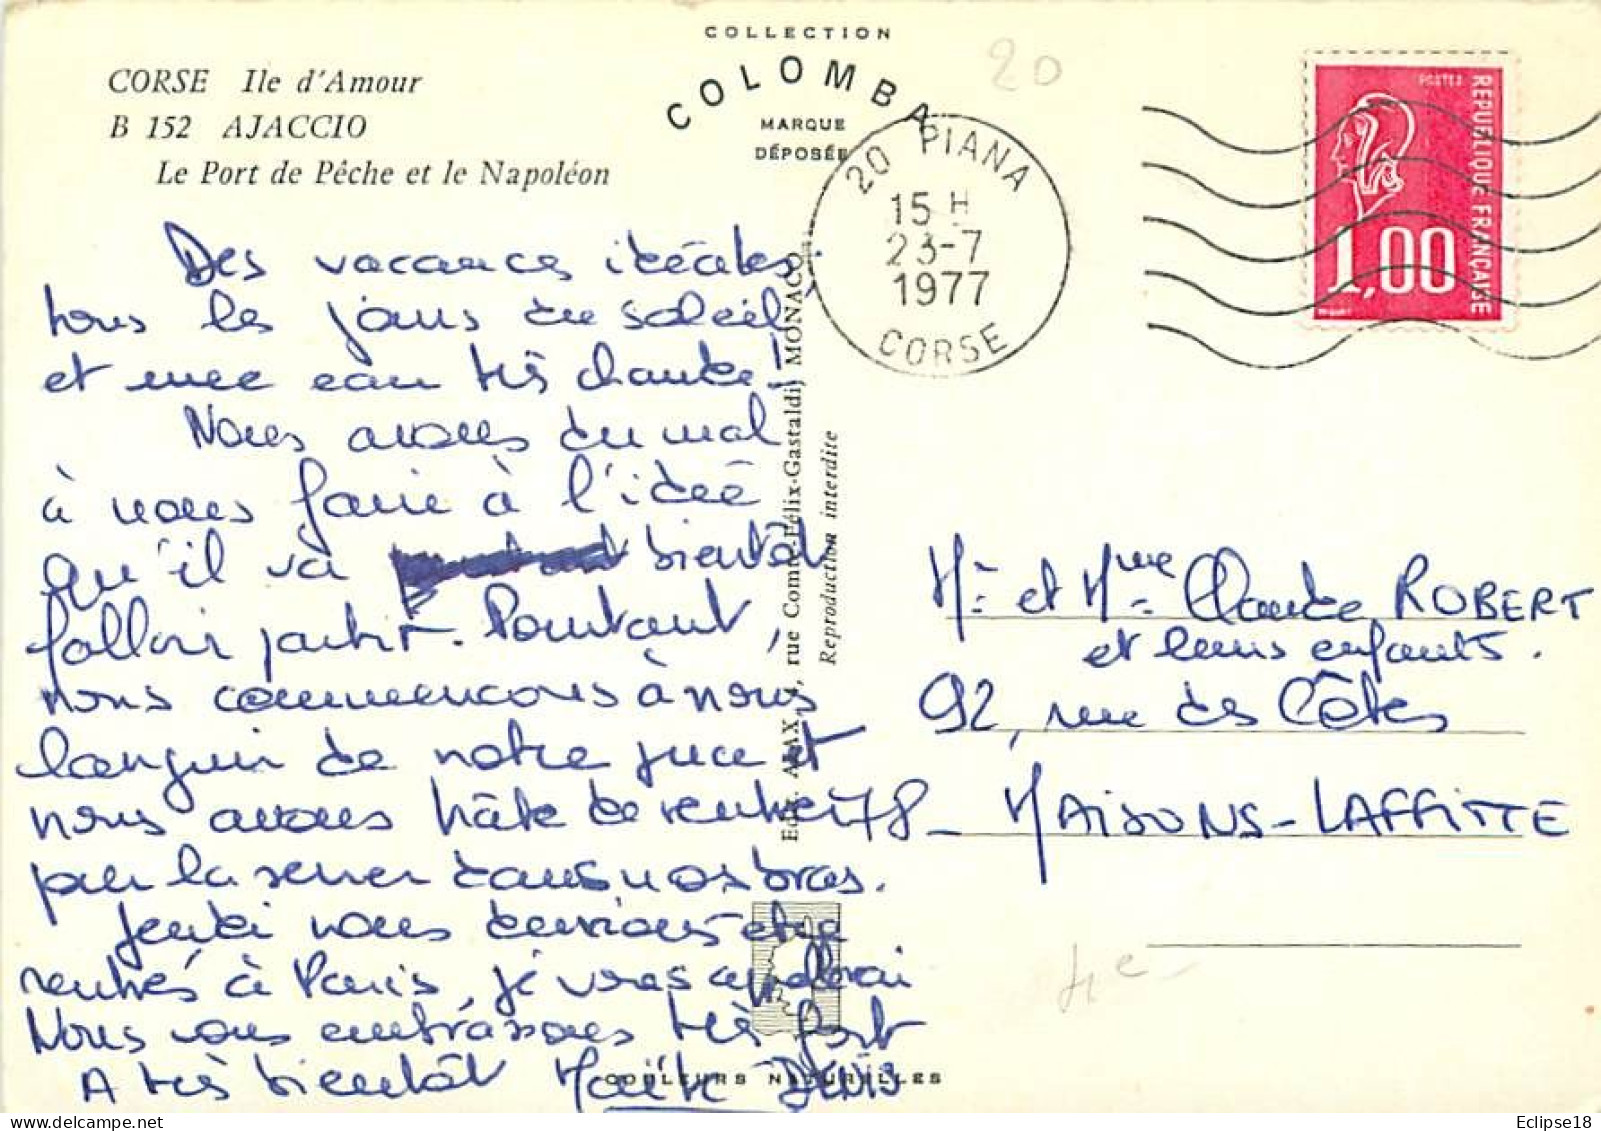 COLLECTION
COLOMBA
MARQUE
DÉPOSÉE
20
CORSE Ile d'Amour
B 152 AJACCIO
Le Port de Pêche et le Napoléon
20 PIANA
15 H
23-7
1977
CORSE
POSTES
REPUBLIQUE FRANÇAISE
1,00
Des vacances idéales:
tous les jours du soleil
et une eau très chaude!
Nous avons du mal
à nous faire à l'idée
qu'il va bientôt
falloir partir. Pourtant,
nous commençons à nous
languir de notre puce et
nous avons hâte de rentrer
pour la serrer dans nos bras.
Jeudi nous devrions être
rentrés à Paris, je vous appellerai
Nous vous embrassons très fort
A très bientôt Maïté Denis
Edit. AJAX, rue Comte-Félix-Gastaldi, MONACO
Reproduction interdite
Mr et Mme Claude ROBERT
et leurs enfants.
92, rue des Côtes
78_ MAISONS-LAFFITTE
COULEURS NATURELLES
Eclipse18